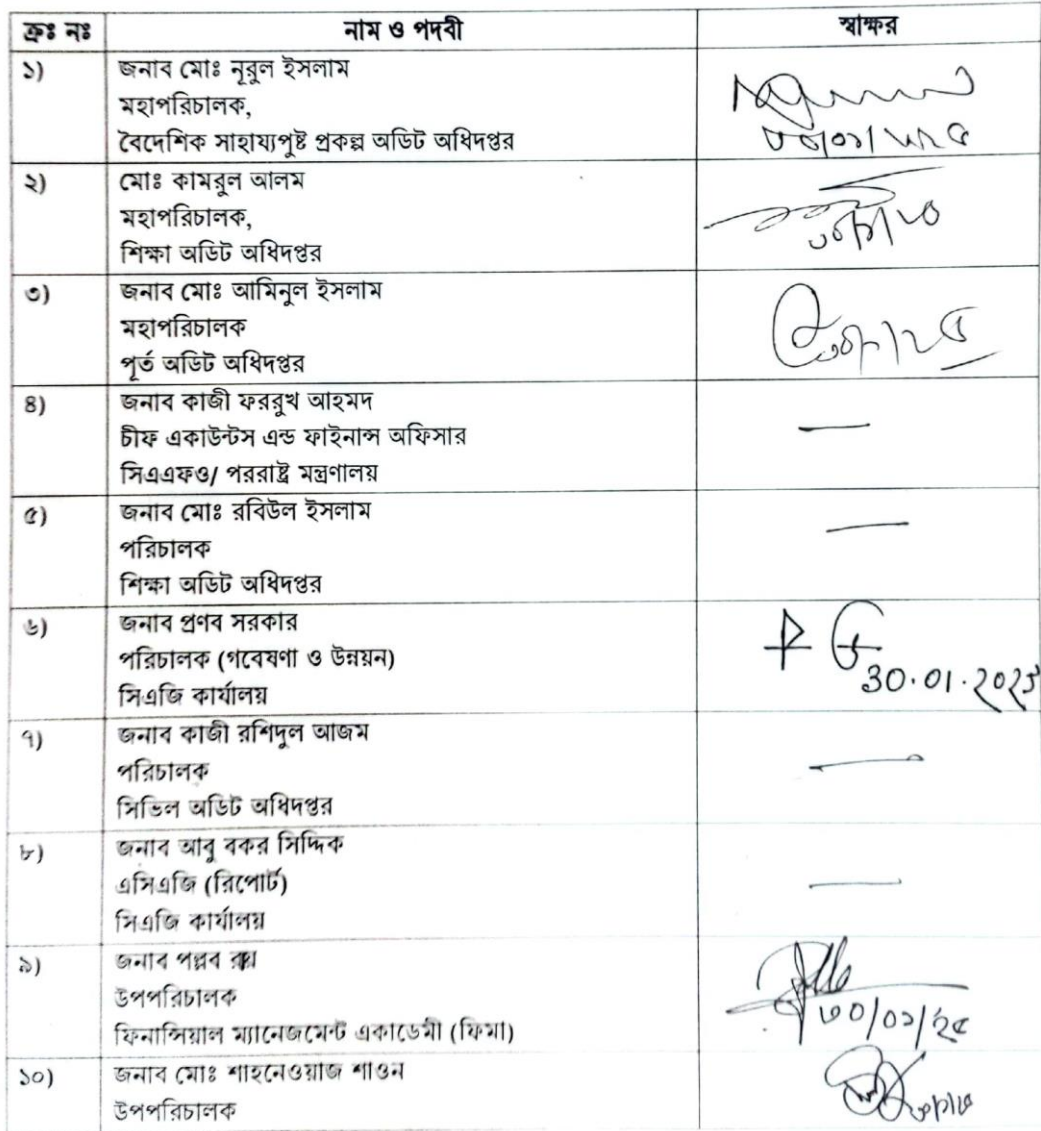 ক্রঃ নঃ নাম ও পদবী স্বাক্ষর
১) জনাব মোঃ নূরুল ইসলাম
মহাপরিচালক,
বৈদেশিক সাহায্যপুষ্ট প্রকল্প অডিট অধিদপ্তর
২) মোঃ কামরুল আলম
মহাপরিচালক,
শিক্ষা অডিট অধিদপ্তর
৩) জনাব মোঃ আমিনুল ইসলাম
মহাপরিচালক
পূর্ত অডিট অধিদপ্তর
৪) জনাব কাজী ফররুখ আহমদ
চীফ একাউন্টস এন্ড ফাইনান্স অফিসার
সিএএফও/ পররাষ্ট্র মন্ত্রণালয়
৫) জনাব মোঃ রবিউল ইসলাম
পরিচালক
শিক্ষা অডিট অধিদপ্তর
৬) জনাব প্রণব সরকার
পরিচালক (গবেষণা ও উন্নয়ন)
সিএজি কার্যালয়
30.01.২02১
৭) জনাব কাজী রশিদুল আজম
পরিচালক
সিভিল অডিট অধিদপ্তর
৮) জনাব আবু বকর সিদ্দিক
এসিএজি (রিপোর্ট)
সিএজি কার্যালয়
৯) জনাব পল্লব রায়
উপপরিচালক
ফিনান্সিয়াল ম্যানেজমেন্ট একাডেমী (ফিমা)
৩০/০১/২৫
১০) জনাব মোঃ শাহনেওয়াজ শাওন
উপপরিচালক